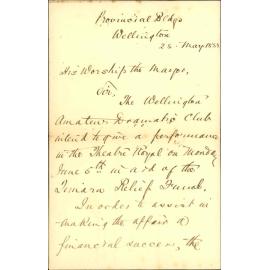 Provincial Bldgs
Wellington
25 May 188
His Worship the Mayor,
Sir,
The Wellington
Amateur Dramatic Club
intend to give a performance
in the Theatre Royal on Monday
June 6th in aid of the
Relief Fund.
In order to assist in
making the affair a
financial success, the